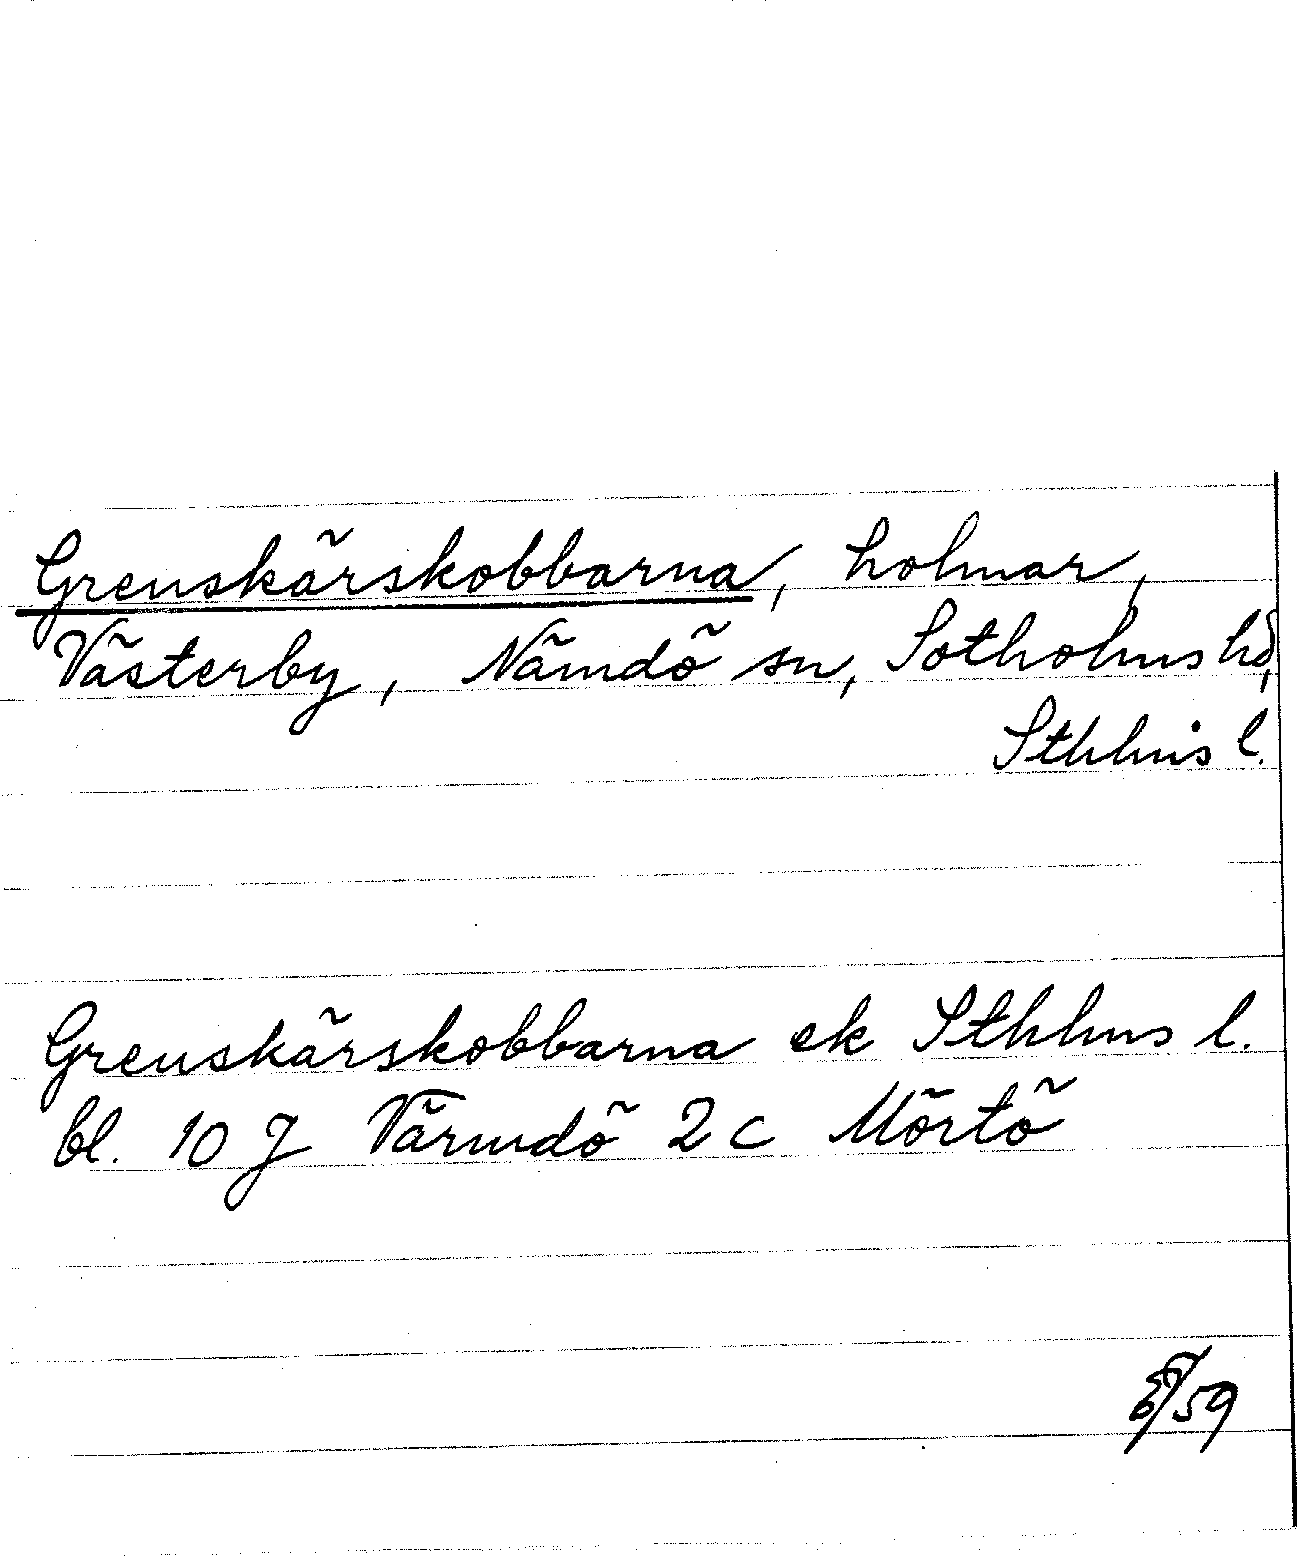 Grenskärskobbarna, holmar,
Västerby, Nämdö sn, Sotholms hd,
Sthlms l.
Grenskärskobbarna ek Sthlms l.
bl. 10 J Värmdö 2 c Mörtö
/59